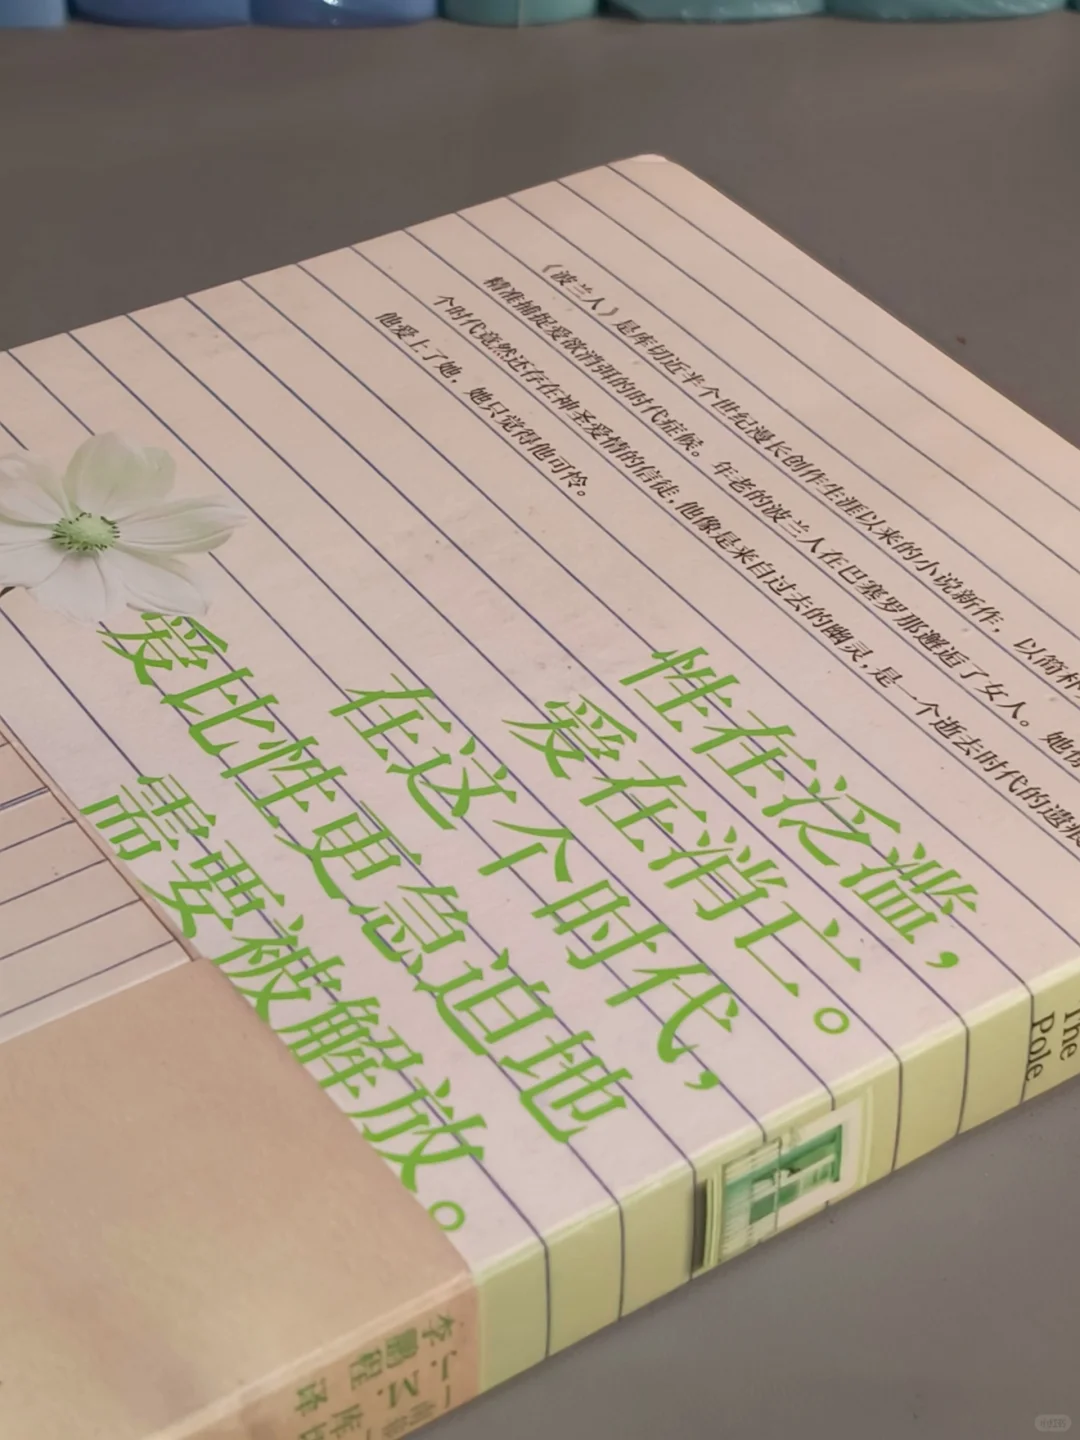 《波兰人》是库切近半个世纪漫长创作生涯以来的小说新作，以简朴
精准捕捉爱欲消弭的时代症候。年老的波兰人在巴塞罗那邂逅了女人。她惊
个时代竟然还存在神圣爱情的信徒，他像是来自过去的幽灵，是一个逝去时代的遗痕
他爱上了她，她只觉得他可怜。
性在泛滥，
爱在消亡。
在这个时代，
爱比性更急迫地
需要被解放。
The
Pole
J. M. 库
李鹏程 译